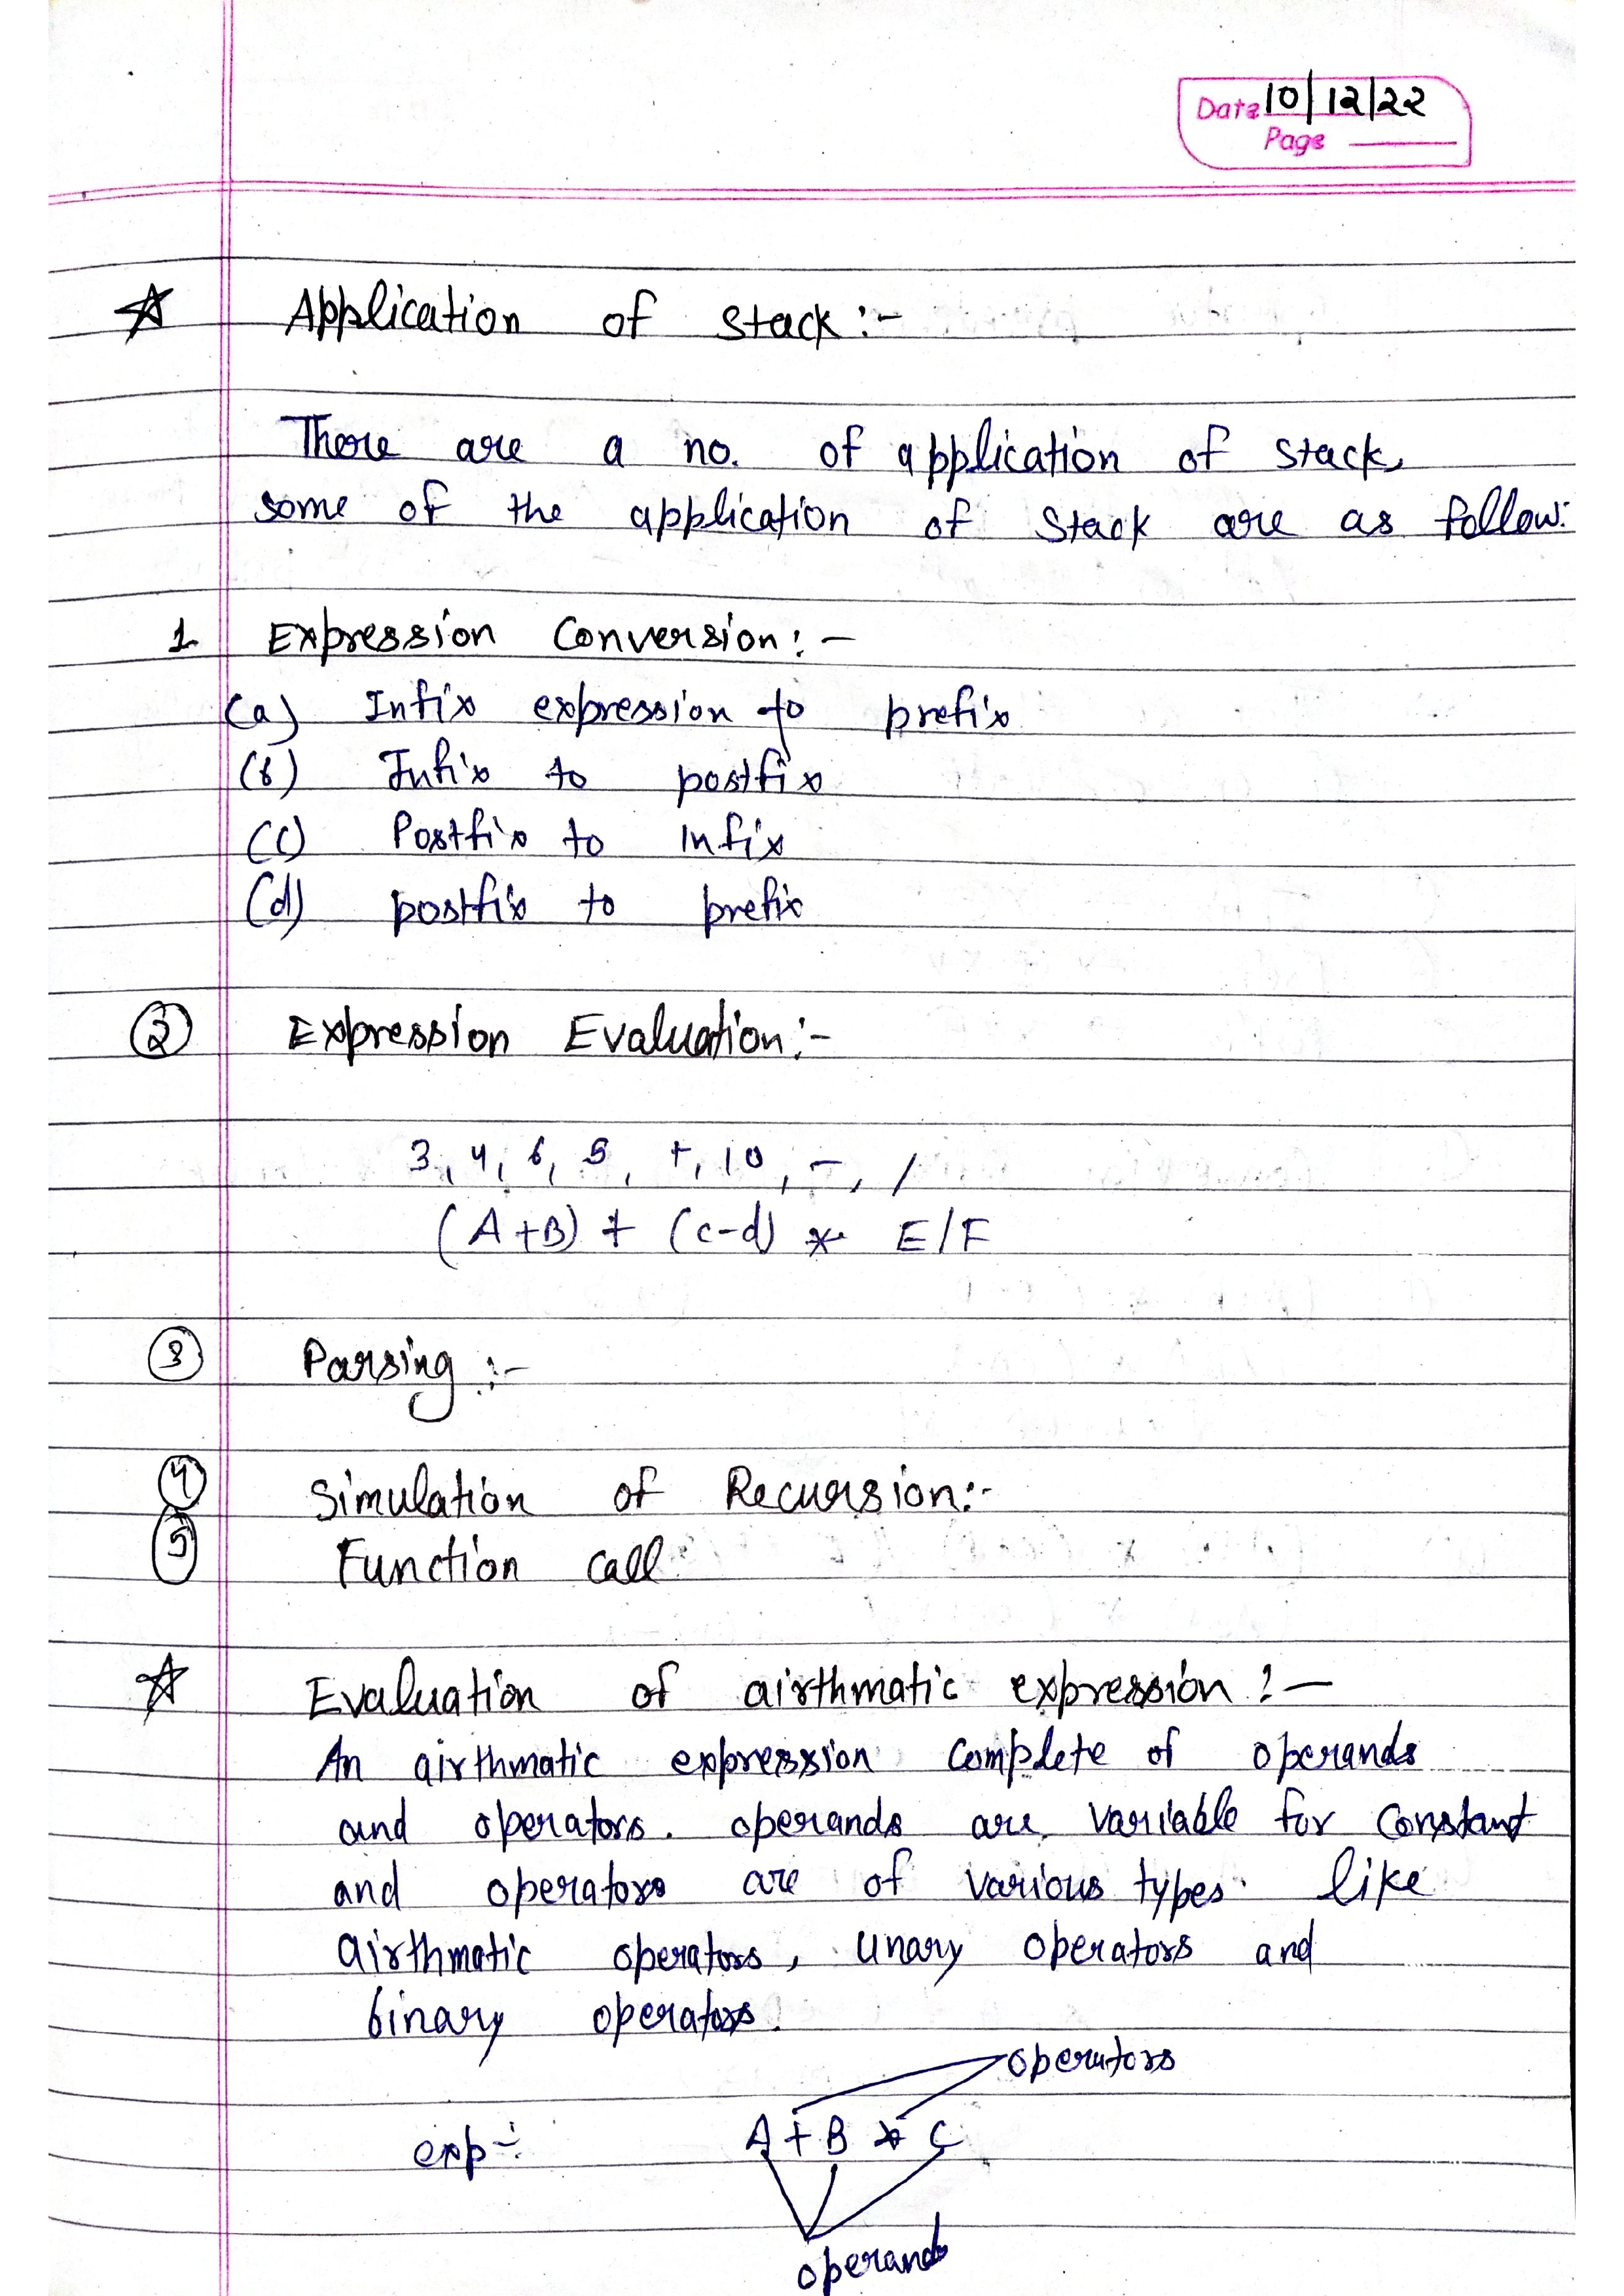 Date 10/12/22
Page
☆ Application of stack :-
There are a no. of application of stack,
some of the application of stack are as follow:
1. Expression Conversion :-
(a) Infix expression to prefix
(b) Infix to postfix
(c) Postfix to Infix
(d) postfix to prefix
② Expression Evaluation :-
3, 4, 6, 5, +, 10, -, /
(A+B) + (c-d) * E/F
③ Parsing :-
④ Simulation of Recursion :-
⑤ Function call
☆ Evaluation of airthmatic expression :-
An airthmatic expression complete of operands
and operators. operands are variable for constant
and operators are of various types. like
airthmatic operators, unary operators and
binary operators.
operators
exp :- A + B * C
operands